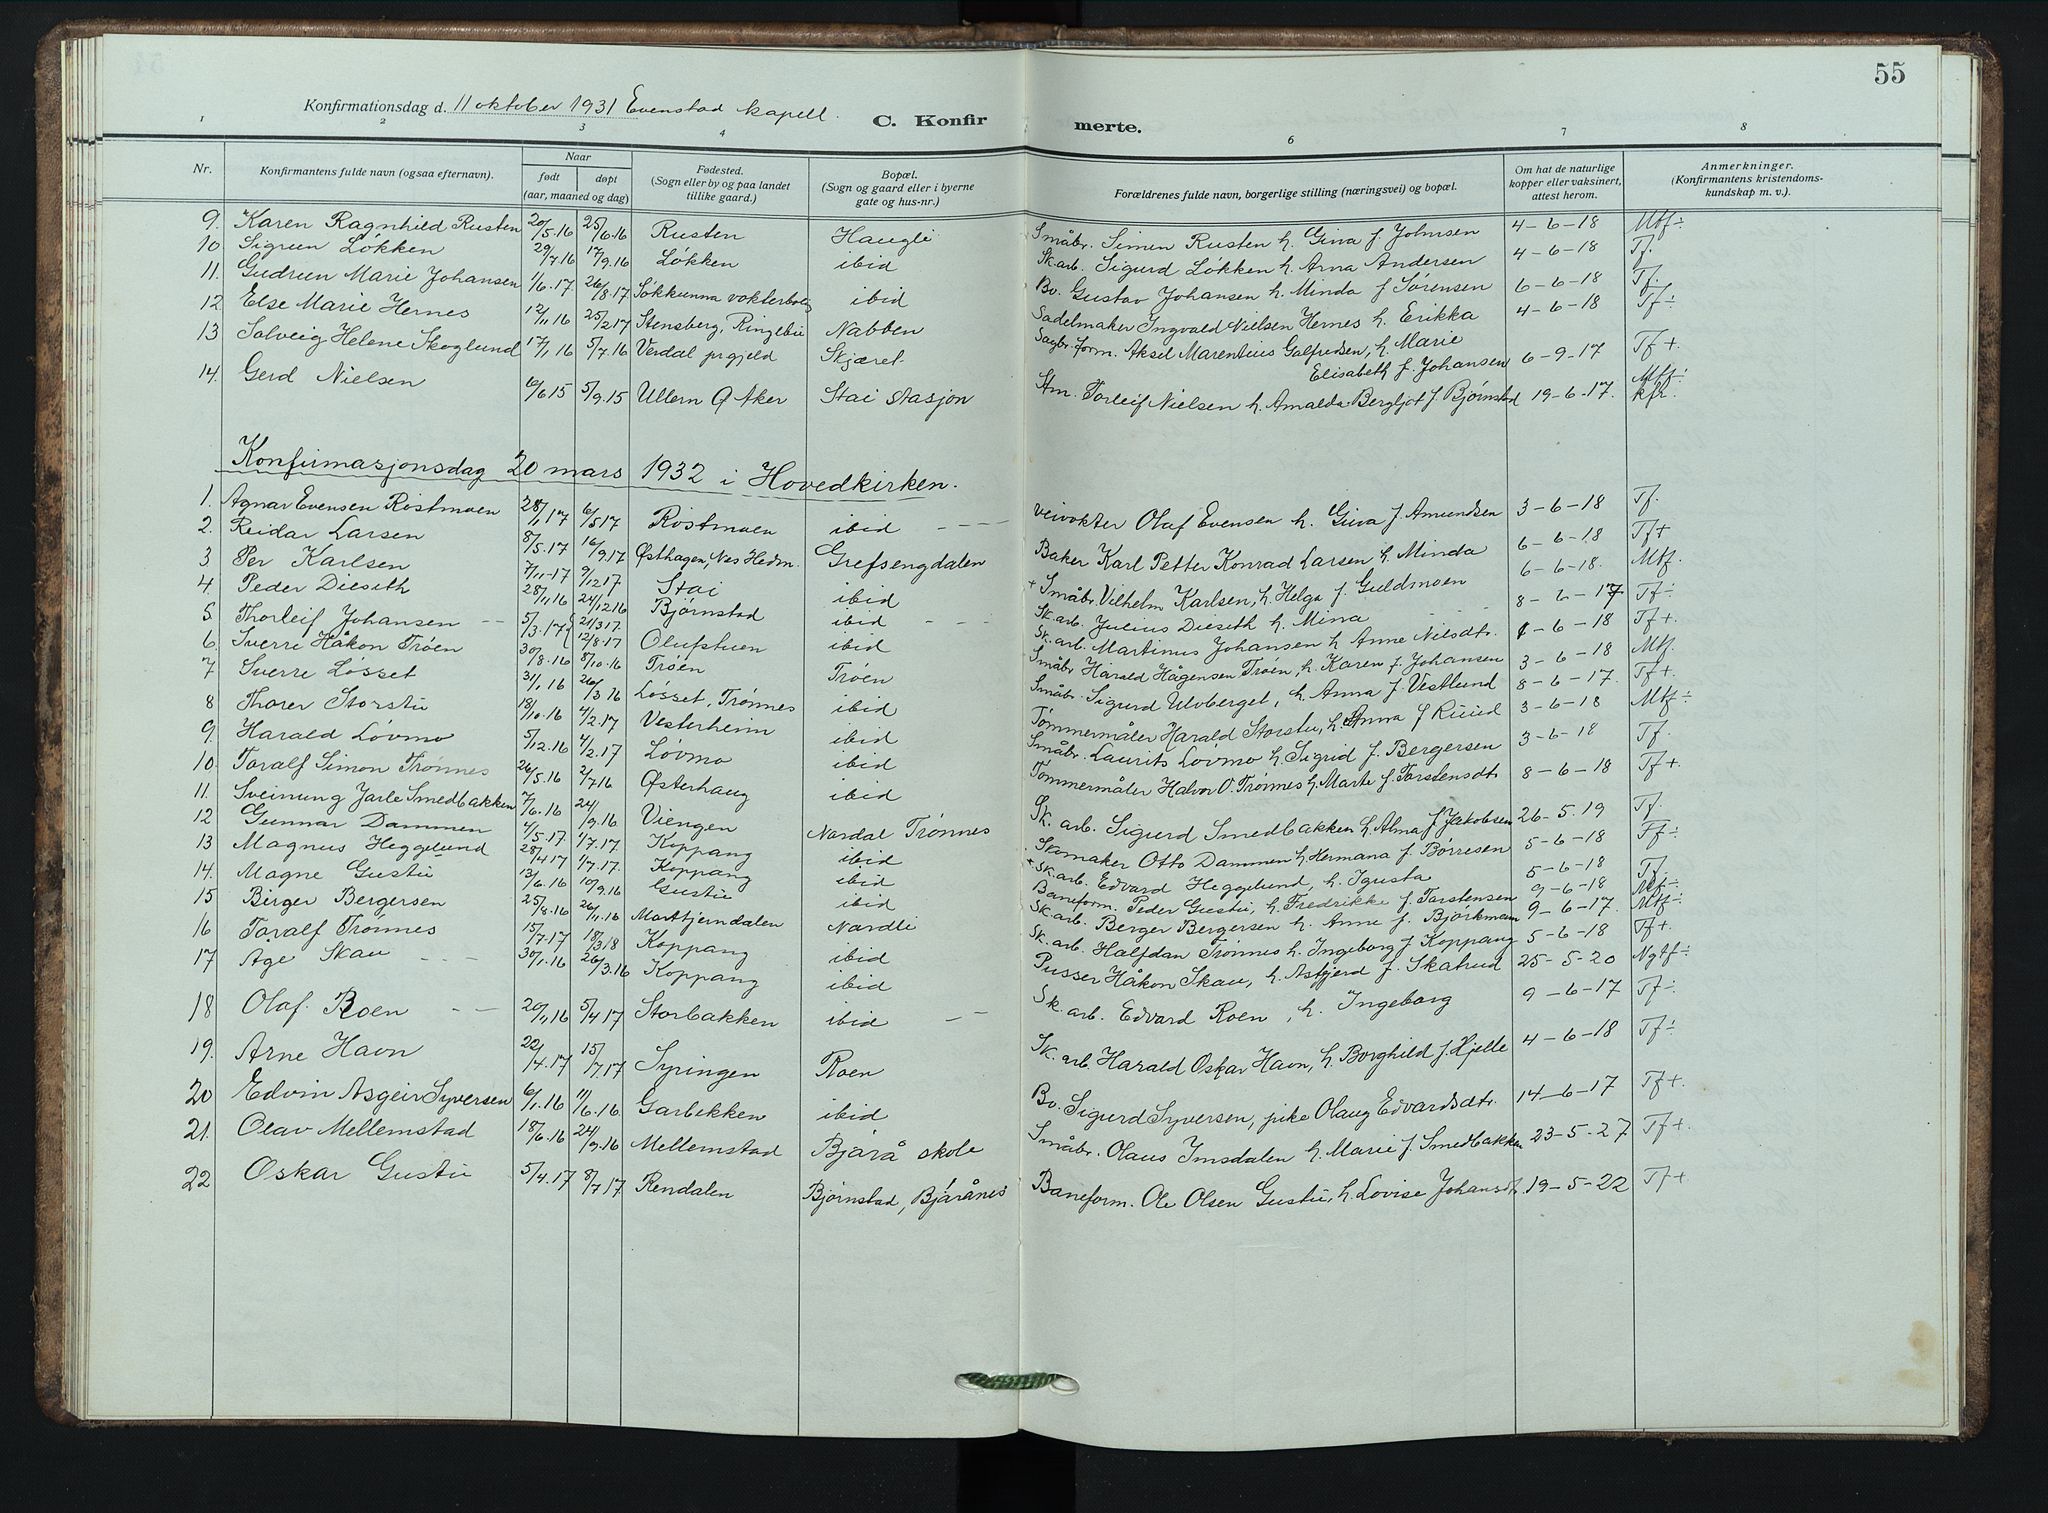 55
Konfirmationsdag d. 11 oktober 1931 Evenstad kapell.
C. Konfirmerte.
1 2 3 4 5 6 7 8
Nr. Konfirmantens fulde navn (ogsaa efternavn). Naar født døpt (aar, maaned og dag) Fødested. (Sogn eller by og paa landet tillike gaard.) Bopæl. (Sogn og gaard eller i byerne gate og hus-nr.) Forældrenes fulde navn, borgerlige stilling (næringsvei) og bopæl. Om hat de naturlige kopper eller vaksinert, attest herom. Anmerkninger. (Konfirmantens kristendomskundskap m. v.).
9. Karen Ragnhild Rusten 20/5.16 25/6.16 Rusten Haugli Småbr. Simen Rusten h. Gina f. Johnsen 4-6-18 Mtf÷
10 Sigrun Løkken 29/7.16 17/9.16 Løkken ibid Sk.arb. Sigurd Løkken h. Arna Andersen 4-6-18 Tf.
11. Gudrun Marie Johansen 1/6.17 26/8.17 Søkkunna vokterbolig ibid Bv. Gustav Johansen h. Minda f Sørensen 6-6-18 Tf.
12 Else Marie Hernes 12/11 16 25/2 17 Stensberg, Ringebu Nabben Sadelmaker Ingvald Nielsen Hernes h. Erikka 4-6-18 Tf÷
13 Solveig Helene Skoglund 17/1 16 5/7.16 Verdal prgjeld Skjæret Sagbr.form. Aksel Marentius Galfredsen, h. Marie Elisabeth f. Johansen 6-9-17 Tf+.
14. Gerd Nielsen 6/6 15 5/9.15 Ullern Ø Aker Stai stasjon Stm. Torleif Nielsen h. Amalda Bergljot f Bjørnstad 19-6-17. Mtf÷ kfr.
Konfirmasjonsdag 20 mars 1932 i Hovedkirken.
1. Agnar Evensen Rostmoen 28/1 17 6/5 17 Rostmoen ibid Veivokter Olaf Evensen h. Gina f. Amundsen 3-6-18 Tf.
2. Reidar Larsen 8/5.17 16/9.17 Østhagen, Nes Hedm. Grefsengdalen Baker Karl Petter Konrad Larsen h. Minda 6-6-18 Tf+
3 Per Karlsen 7/11-17 9/12 17 Stai ibid Småbr. Vilhelm Karlsen, h. Helga f. Guldmoen 6-6-18. Mtf.
4. Peder Dieseth 28/11 16 24/12 16 Bjørnstad ibid Sk.arb. Julius Dieseth h. Mina 8-6-17 Tf÷
5. Thorleif Johansen 5/3.17 12/8.17 Olufstuen ibid Sk.arb. Martinus Johansen h Anne Nilsdtr. 6-18 Tf+
6 Sverre Håkon Trøen 30/8.16 8/10.16 Trøen Trøen Småbr. Harald Hågensen Trøen, h. Karen f. Johansen 3-6-18 Mtf.
7 Sverre Løsset 31/1 16 26/3 16 Løsset, Trønnes ibid Småbr. Sigurd Ulvberget, h Anna f. Vestlund 8-6-17. Tf+
8 Thorer Storstu 18/10.16 4/2.17 Vesterheim ibid Tømmermåler Harald Storstu, h. Anna f Ruud 3-6-18 Mtf÷
9. Harald Løvmo 5/12.16 4/2.17 Løvmo ibid Småbr. Laurits Løvmo h. Sigrid f. Bergersen 3-6-18 Tf.
10. Toralf Simon Trønnes 26/5.16 2/7 16 Østerhaug ibid Tømmermåler Halvor O. Trønnes h. Marte f. Torstensdtr 8-6-18 Tf+.
11. Sveinung Jarle Smedbakken 7/6.16 24/9.16 Viengen Nordal Trønnes Sk. arb. Sigurd Smedbakken h Alma f Jakobsen 26-5.19 Tf.
12 Gunnar Dammen 4/5.17 1/7.17. Koppang ibid Skomaker Otto Dammen h Hermana f. Børresen 5-6-18 Tf÷
13 Magnus Heggelund 28/4 17 1/7.17. Koppang ibid Sk.arb. Edvard Heggelund, h. Igusta 5-6-18 Tf.
14. Magne Gustu 13/6.16 10/9.16 Gustu ibid Baneform. Peder Gustu, h. Fredrikke f Torstensen 9-6-18 Mf÷
15 Birger Bergersen 25/8.16 26/11.16 Mortfjerndalen Nordli Sk.arb. Berger Bergersen h. Anne f Bjørkmann 9-6-17. Mtf÷
16 Toralf Trønnes 15/7.17 18/3 18 Koppang ibid Sk.arb. Halfdan Trønnes h. Ingeborg f Koppang 5-6-18 Tf+
17 Åge Skau 30/1.16 26/3.16 Koppang ibid Pusser Håkon Skau, h. Astjerd f. Skatrud 25-5-20 Ngtf÷
18 Olaf. Roen 20/11 16 5/4 17 Storbakken ibid Sk. arb. Edvard Roen, h. Ingeborg 9-6-17 Tf÷
19. Arne Havn 22/4.17 15/7.17 Syringen Roen Sk. arb. Harald Oskar Havn, h. Borghild f. Hjelle 4-6-18 Tf÷
20 Edvin Asgeir Syversen 6/1.16 11/6.16. Garbekken ibid Bv. Sigurd Syversen, pike Olaug Edvardsdtr. 14-6-17 Tf+.
21. Olav Mellemstad 18/6.16 24/9.16 Mellemstad Bjørå skole Småbr. Olaus Imsdalen h. Marie f. Smedbakken 23-5-27. Tf+.
22 Oskar Gustu 5/4.17 8/7 17. Rendalen Bjørnstad, Bjørånes Baneform. Ole Olsen Gustu, h Lovise Johansdtr. 19-5-22 Tf+